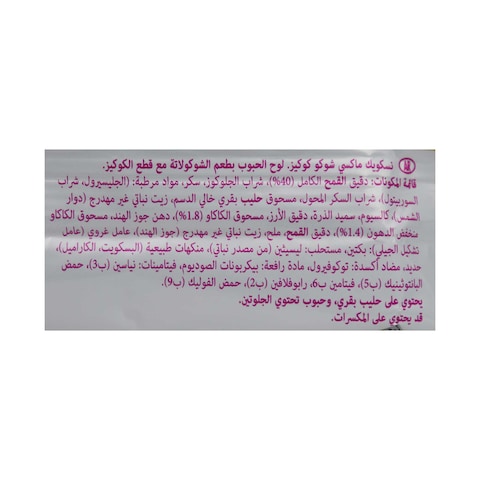 نسكويك ماكسي شوكو كوكيز. لوح الحبوب بطعم الشوكولاتة مع قطع الكوكيز.
قائمة المكونات: دقيق القمح الكامل (40%)، شراب الجلوكوز، سكر، مواد مرطبة: (الجليسيرول، شراب
السوربيتول)، شراب السكر المحول، مسحوق حليب بقري خالي الدسم، زيت نباتي غير مهدرج (دوار
الشمس)، كالسيوم، سميد الذرة، دقيق الأرز، مسحوق الكاكاو (1.8%)، دهن جوز الهند، مسحوق الكاكاو
منخفض الدهون (1.4%)، دقيق القمح، ملح، زيت نباتي غير مهدرج (جوز الهند)، عامل غروي (عامل
تشكيل الجيلي): بكتين، مستحلب: ليسيثين (من مصدر نباتي)، منكهات طبيعية (البسكويت، الكاراميل)،
حديد، مضاد أكسدة: توكوفيرول، مادة رافعة: بيكربونات الصوديوم، فيتامينات: نياسين (ب3)، حمض
البانتوثينيك (ب5)، فيتامين ب6، رابوفلافين (ب2)، حمض الفوليك (ب9).
يحتوي على حليب بقري، وحبوب تحتوي الجلوتين.
قد يحتوي على المكسرات.